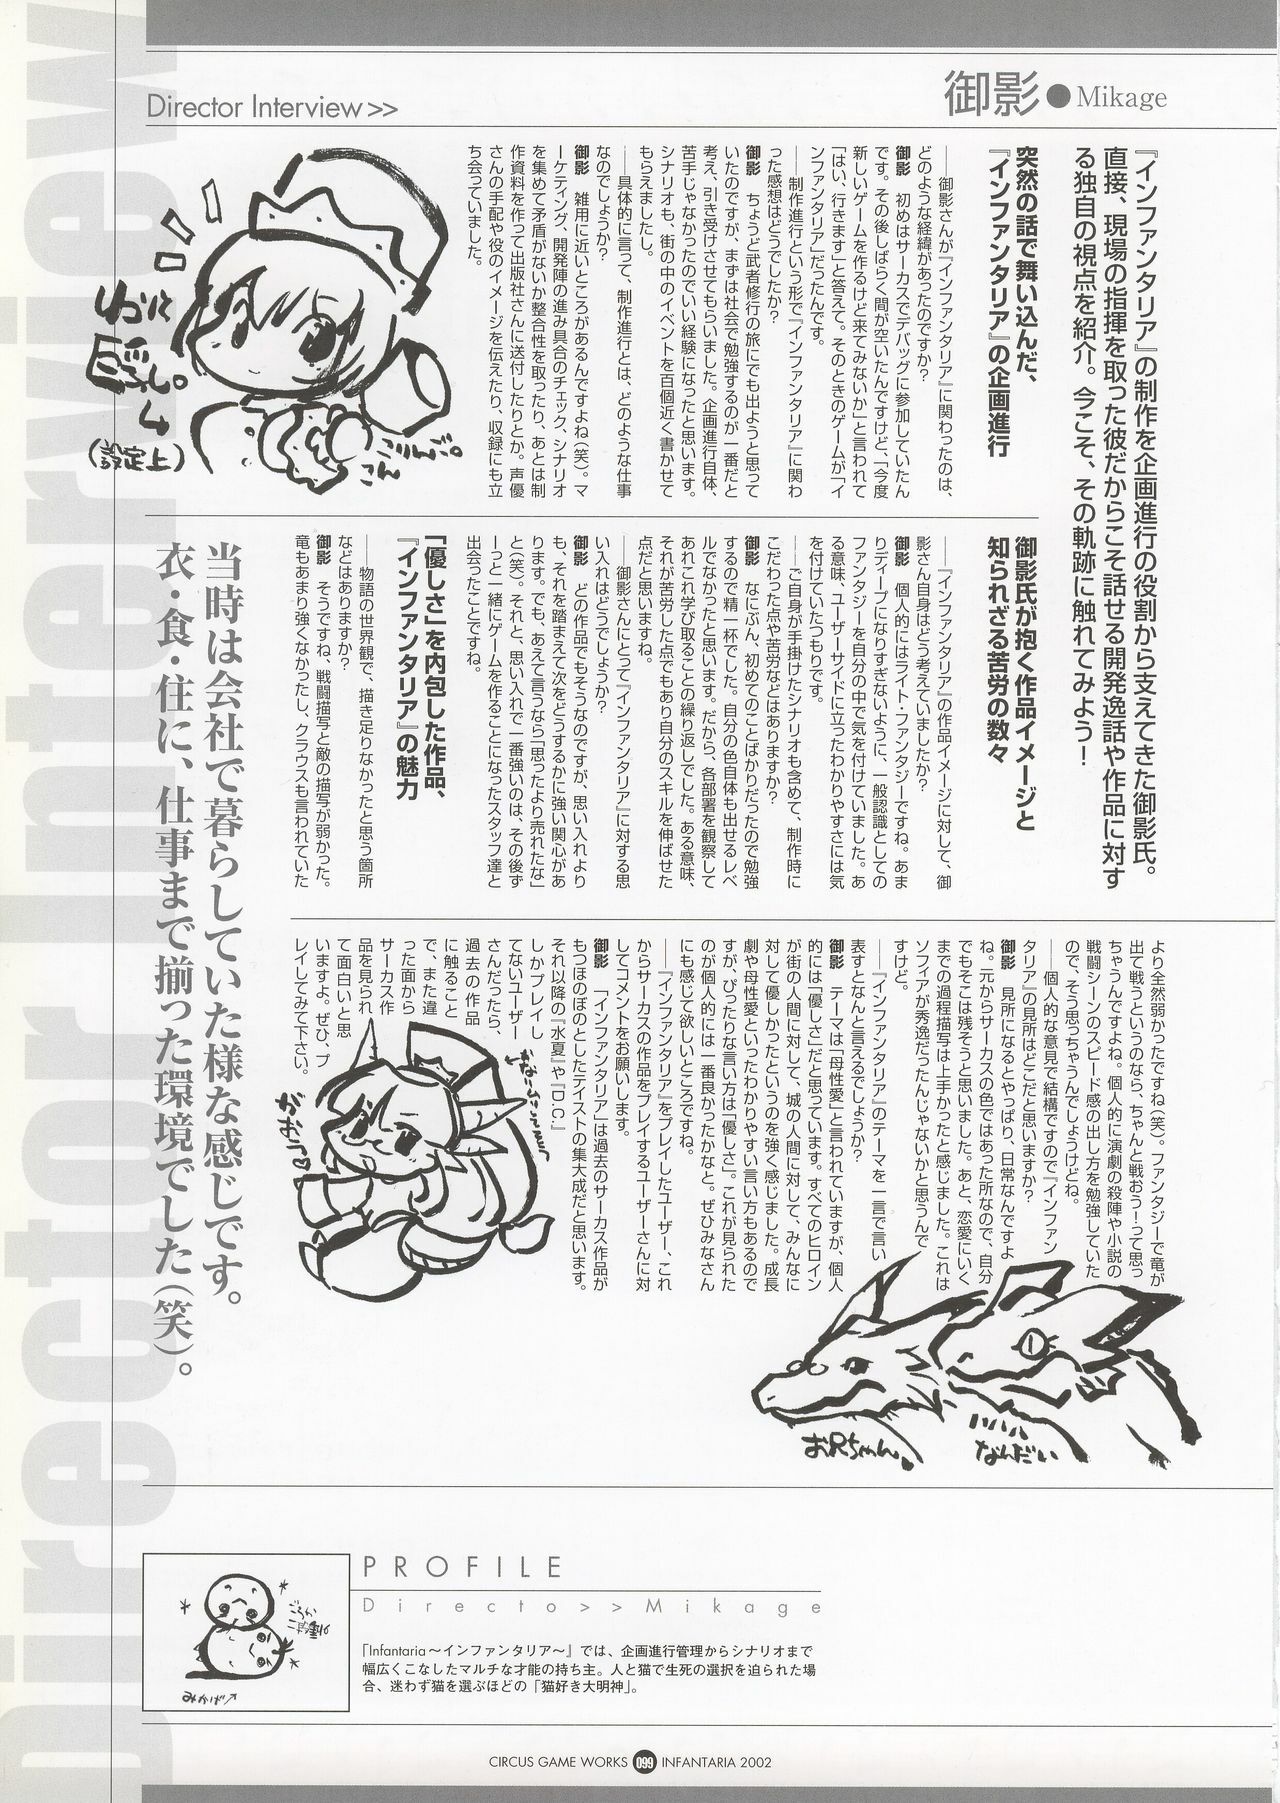 Director Interview>>
御影●Mikage
『インファンタリア』の制作を企画進行の役割から支えてきた御影氏。
直接、現場の指揮を取った彼だからこそ話せる開発逸話や作品に対す
る独自の視点を紹介。今こそ、その軌跡に触れてみよう！
突然の話で舞い込んだ、
『インファンタリア』の企画進行
――御影さんが『インファンタリア』に関わったのは、
どのような経緯があったのですか？
御影　初めはサーカスでデバッグに参加していたん
です。その後しばらく間が空いたんですけど、「今度
新しいゲームを作るけど来てみないか」と言われて
「はい、行きます」と答えて。そのときのゲームが「イ
ンファンタリア」だったんです。
――制作進行という形で『インファンタリア』に関わ
った感想はどうでしたか？
御影　ちょうど武者修行の旅にでも出ようと思って
いたのですが、まずは社会で勉強するのが一番だと
考え、引き受けさせてもらいました。企画進行自体、
苦手じゃなかったのでいい経験になったと思います。
シナリオも、街の中のイベントを百個近く書かせて
もらえましたし。
――具体的に言って、制作進行とは、どのような仕事
なのでしょうか？
御影　雑用に近いところがあるんですよね（笑）。マ
ーケティング、開発陣の進み具合のチェック、シナリオ
を集めて矛盾がないか整合性を取ったり、あとは制
作資料を作って出版社さんに送付したりとか。声優
さんの手配や役のイメージを伝えたり、収録にも立
ち会っていました。
巨乳。
（設定上）
こりんご。
こん
御影氏が抱く作品イメージと
知られざる苦労の数々
――『インファンタリア』の作品イメージに対して、御
影さん自身はどう考えていましたか？
御影　個人的にはライト・ファンタジーですね。あま
りディープになりすぎないように、一般認識としての
ファンタジーを自分の中で気を付けていました。あ
る意味、ユーザーサイドに立ったわかりやすさには気
を付けていたつもりです。
――ご自身が手掛けたシナリオも含めて、制作時に
こだわった点や苦労などはありますか？
御影　なにぶん、初めてのことばかりだったので勉強
するので精一杯でした。自分の色自体も出せるレベ
ルでなかったと思います。だから、各部署を観察して
あれこれ学び取ることの繰り返しでした。ある意味、
それが苦労した点でもあり自分のスキルを伸ばせた
点だと思いますね。
――御影さんにとって『インファンタリア』に対する思
い入れはどうでしょうか？
御影　どの作品でもそうなのですが、思い入れより
も、それを踏まえて次をどうするかに強い関心があ
ります。でも、あえて言うなら「思ったより売れたな」
と（笑）。それと、思い入れで一番強いのは、その後ず
ーっと一緒にゲームを作ることになったスタッフ達と
出会ったことですね。
「優しさ」を内包した作品、
『インファンタリア』の魅力
――物語の世界観で、描き足りなかったと思う箇所
などはありますか？
御影　そうですね、戦闘描写と敵の描写が弱かった。
竜もあまり強くなかったし、クラウスも言われていた
当時は会社で暮らしていた様な感じです。
衣・食・住に、仕事まで揃った環境でした（笑）。
より全然弱かったですね（笑）。ファンタジーで竜が
出て戦うというのなら、ちゃんと戦おうーって思っ
ちゃうんですよね。個人的に演劇の殺陣や小説の
戦闘シーンのスピード感の出し方を勉強していた
ので、そう思っちゃうんでしょうけどね。
――個人的な意見で結構ですので『インファン
タリア』の見所はどこだと思いますか？
御影　見所になるとやっぱり、日常なんですよ
ね。元からサーカスの色ではあった所なので、自分
でもそこは残そうと思いました。あと、恋愛にいく
までの過程描写は上手かったと感じました。これは
ソフィアが秀逸だったんじゃないかと思うんで
すけど。
――『インファンタリア』のテーマを一言で言い
表すとなんと言えるでしょうか？
御影　テーマは「母性愛」と言われていますが、個人
的には「優しさ」だと思っています。すべてのヒロイン
が街の人間に対して、城の人間に対して、みんなに
対して優しかったというのを強く感じました。成長
劇や母性愛といったわかりやすい言い方もあるので
すが、ぴったりな言い方は「優しさ」。これが見られた
のが個人的には一番良かったかなと。ぜひみなさん
にも感じて欲しいところですね。
――『インファンタリア』をプレイしたユーザー、これ
からサーカスの作品をプレイするユーザーさんに対
してコメントをお願いします。
御影　「インファンタリア」は過去のサーカス作品が
もつほのぼのとしたテイストの集大成だと思います。
それ以降の『水夏』や『D.C.』
しかプレイし
てないユーザー
さんだったら、
過去の作品
に触ること
で、また違
った面から
サーカス作
品を見られ
て面白いと思
いますよ。ぜひ、プ
レイしてみて下さい。
がおっ♡
お兄ちゃん。
なんだい
みかげ↗
PROFILE
Directo>>Mikage
『Infantaria～インファンタリア～』では、企画進行管理からシナリオまで
幅広くこなしたマルチな才能の持ち主。人と猫で生死の選択を迫られた場
合、迷わず猫を選ぶほどの「猫好き大明神」。
CIRCUS GAME WORKS 099 INFANTARIA 2002
Director Interview